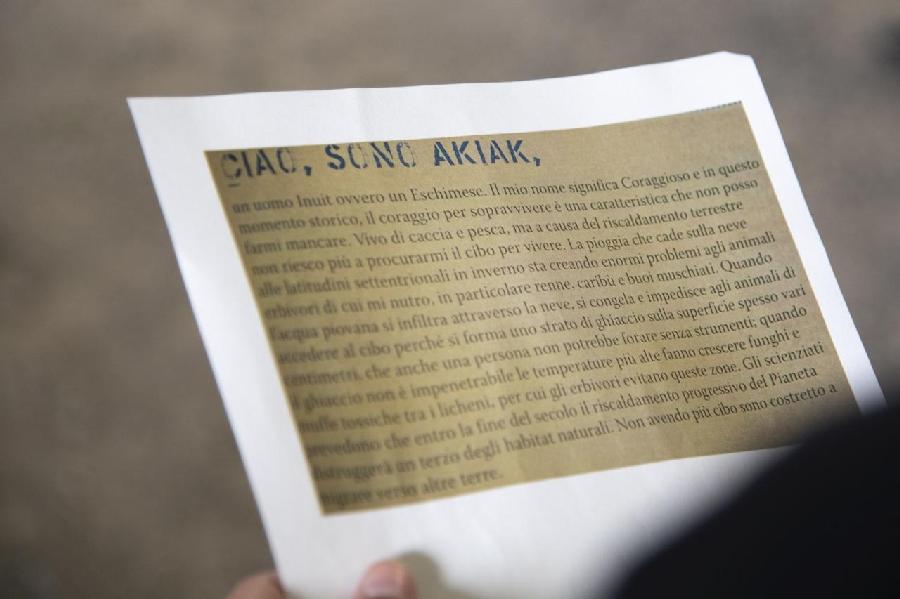 CIAO, SONO AKIAK,
un uomo Inuit ovvero un Eschimese. Il mio nome significa Coraggioso e in questo
momento storico, il coraggio per sopravvivere è una caratteristica che non posso
farmi mancare. Vivo di caccia e pesca, ma a causa del riscaldamento terrestre
non riesco più a procurarmi il cibo per vivere. La pioggia che cade sulla neve
alle latitudini settentrionali in inverno sta creando enormi problemi agli animali
erbivori di cui mi nutro, in particolare renne, caribù e buoi muschiati. Quando
l'acqua piovana si infiltra attraverso la neve, si congela e impedisce agli animali di
accedere al cibo perché si forma uno strato di ghiaccio sulla superficie spesso vari
centimetri, che anche una persona non potrebbe forare senza strumenti; quando
il ghiaccio non è impenetrabile le temperature più alte fanno crescere funghi e
muffe tossiche tra i licheni, per cui gli erbivori evitano queste zone. Gli scienziati
prevedono che entro la fine del secolo il riscaldamento progressivo del Pianeta
distruggerà un terzo degli habitat naturali. Non avendo più cibo sono costretto a
migrare verso altre terre.